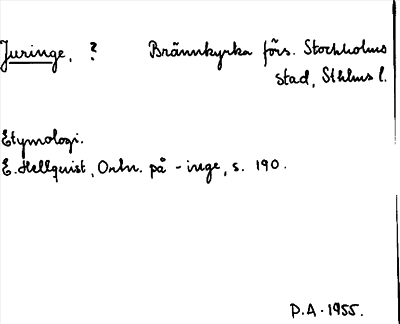 Juringe, ? Brännkyrka förs. Stockholms
stad, Sthlms l.
Etymologi.
E. Hellquist, Ortn. på -inge, s. 190.
P.A. 1955.